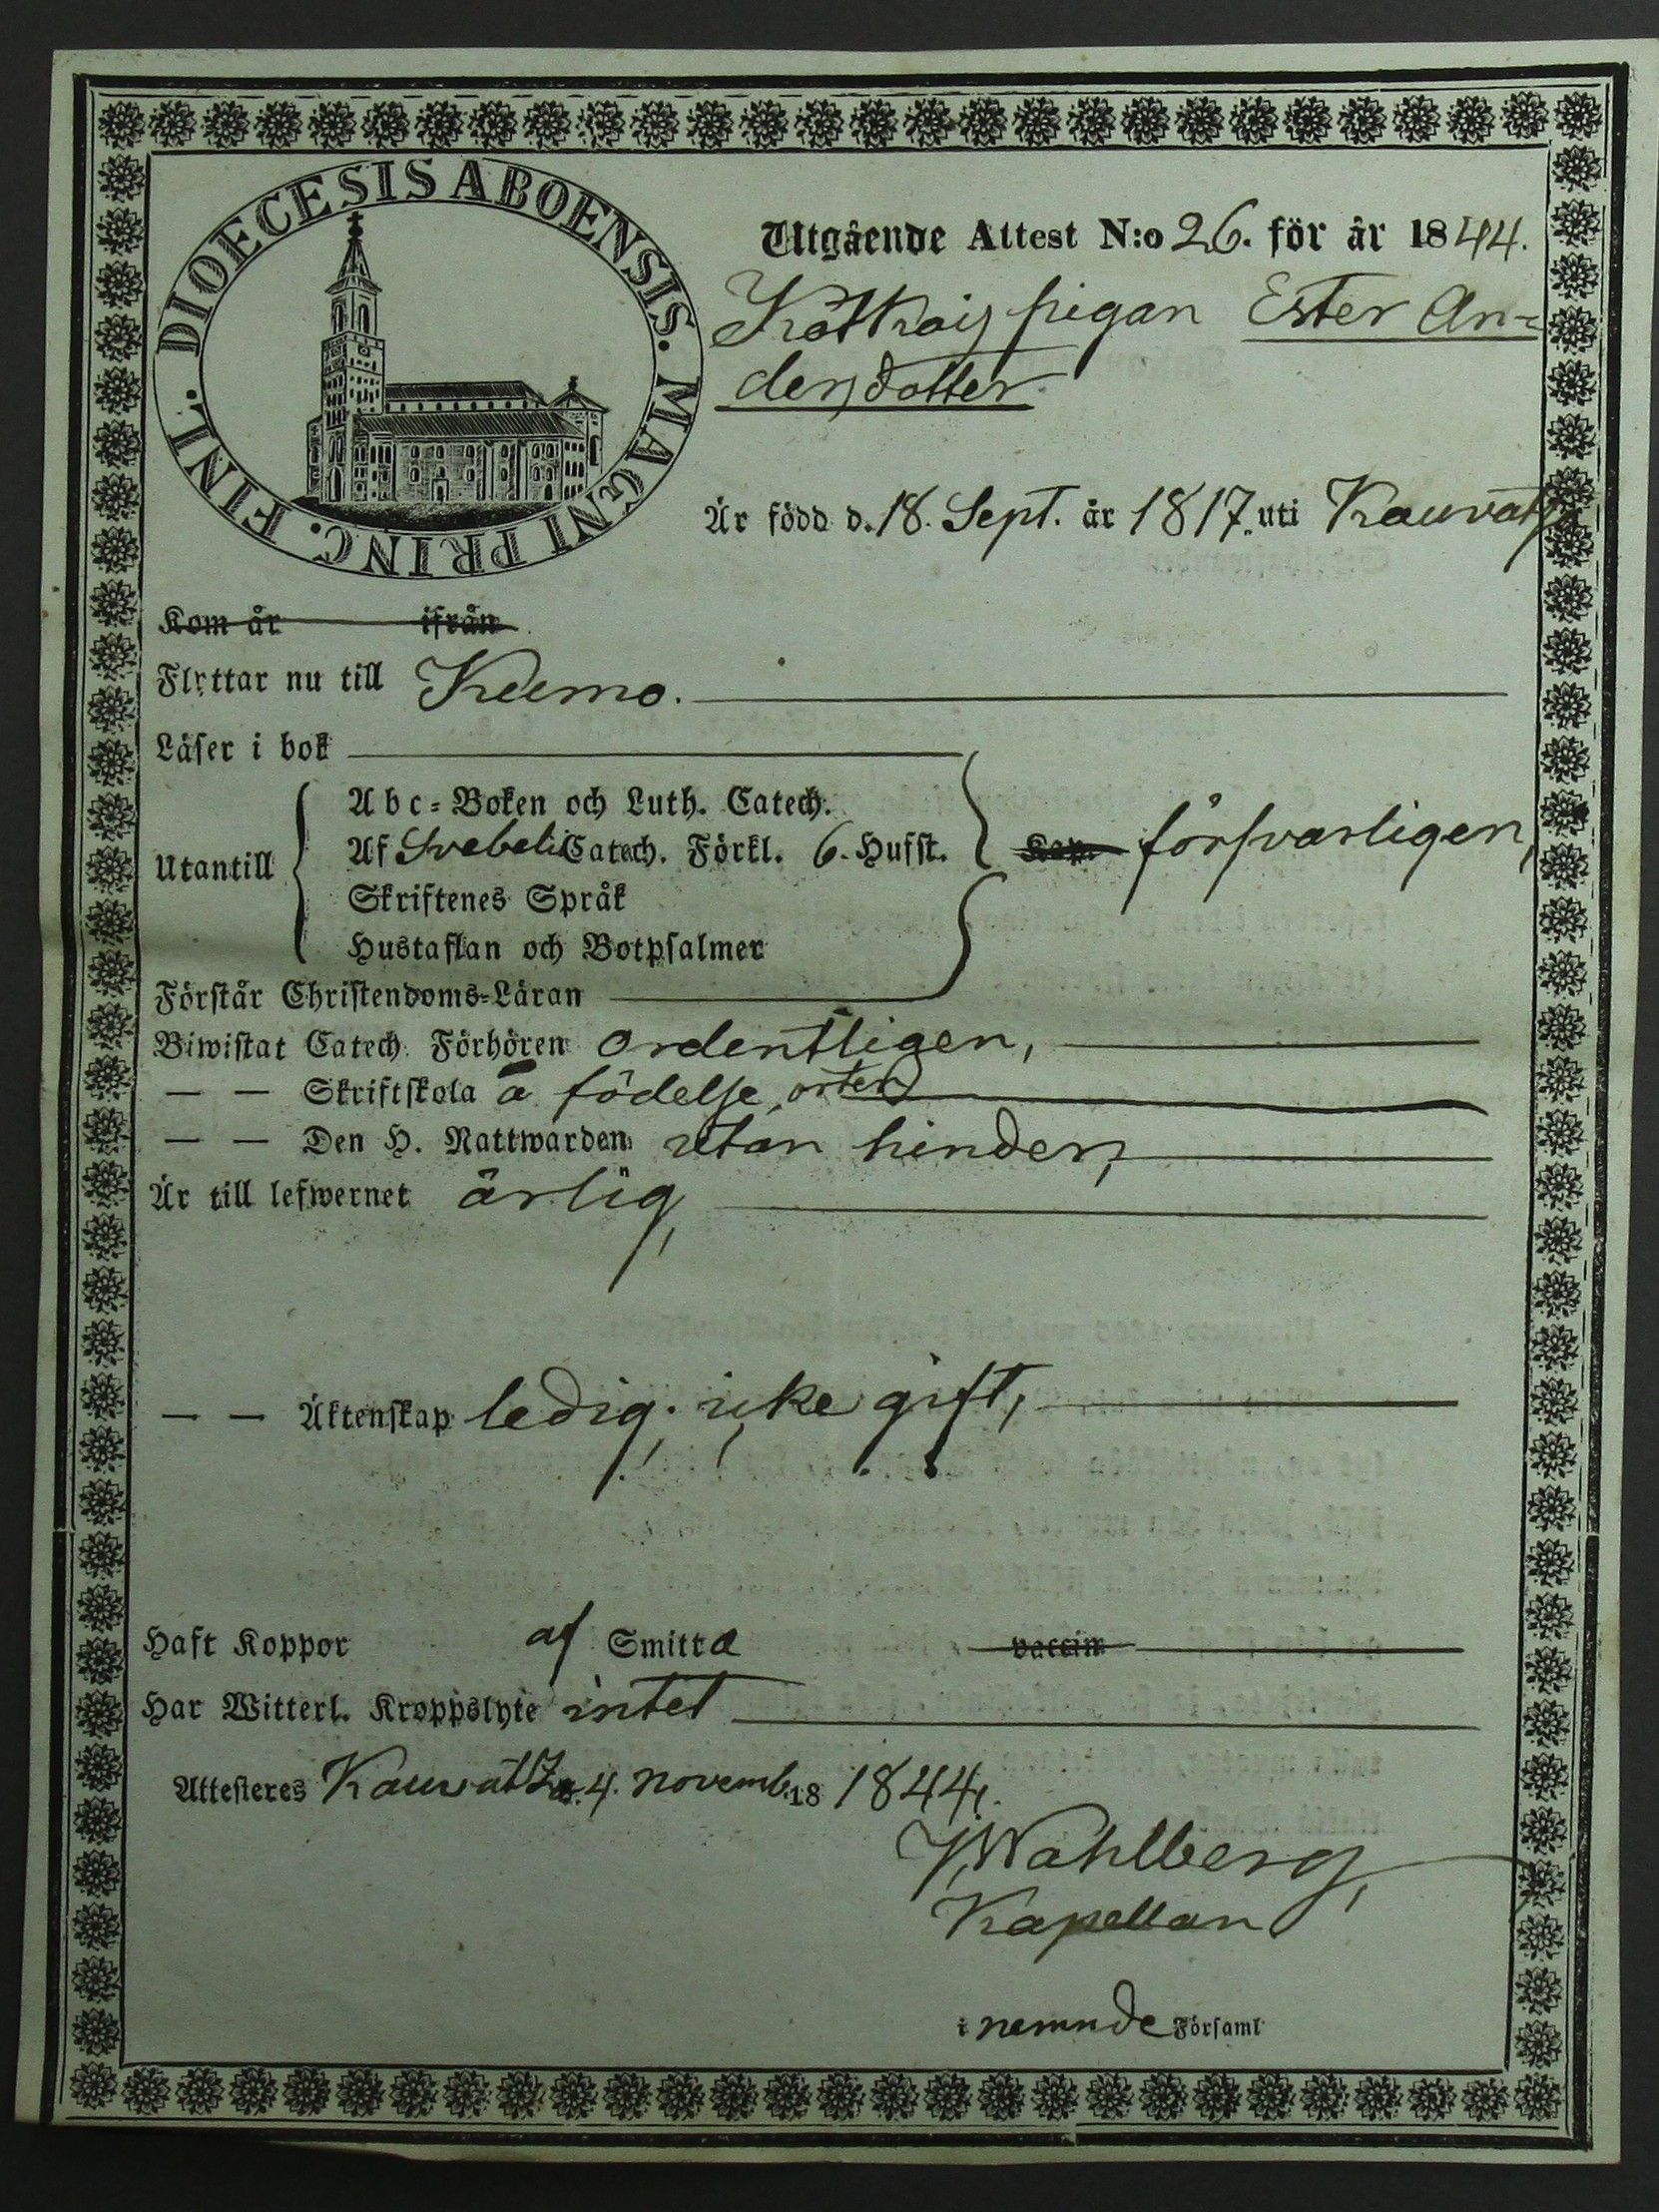 DIOECESIS ABOENSIS. MAGNI PRINC. FINL.
Utgående Attest N:o 26. för år 1844.
pigan Ester An-
dersdotter
Är född d. 18. Sept. år 1817. uti Kauvatsa
Kom år ifrån
Flyttar nu till Kiemo.
Läser i bok
Abc-Boken och Luth. Catech.
Utantill
Af Svebelii Catech. Förkl. 6. Hufst.
försvarligen,
Skriftenes Språk
Hustaflan och Botpsalmer
Förstår Christendoms-Läran
Biwistat Catech. Förhören ordentligen,
— — Skriftskola å födelse orten
— — Den H. Nattwarden utan hinder,
Är till lefwernet ärlig,
— — Äktenskap ledig, icke gift,
Haft Koppor af Smitta vaccin
Har Witterl. Kroppslyte intet
Attesteres Kauvatza d. 4. novemb. 18 1844.
Wahlberg,
Kapellan
i nemnde Församl